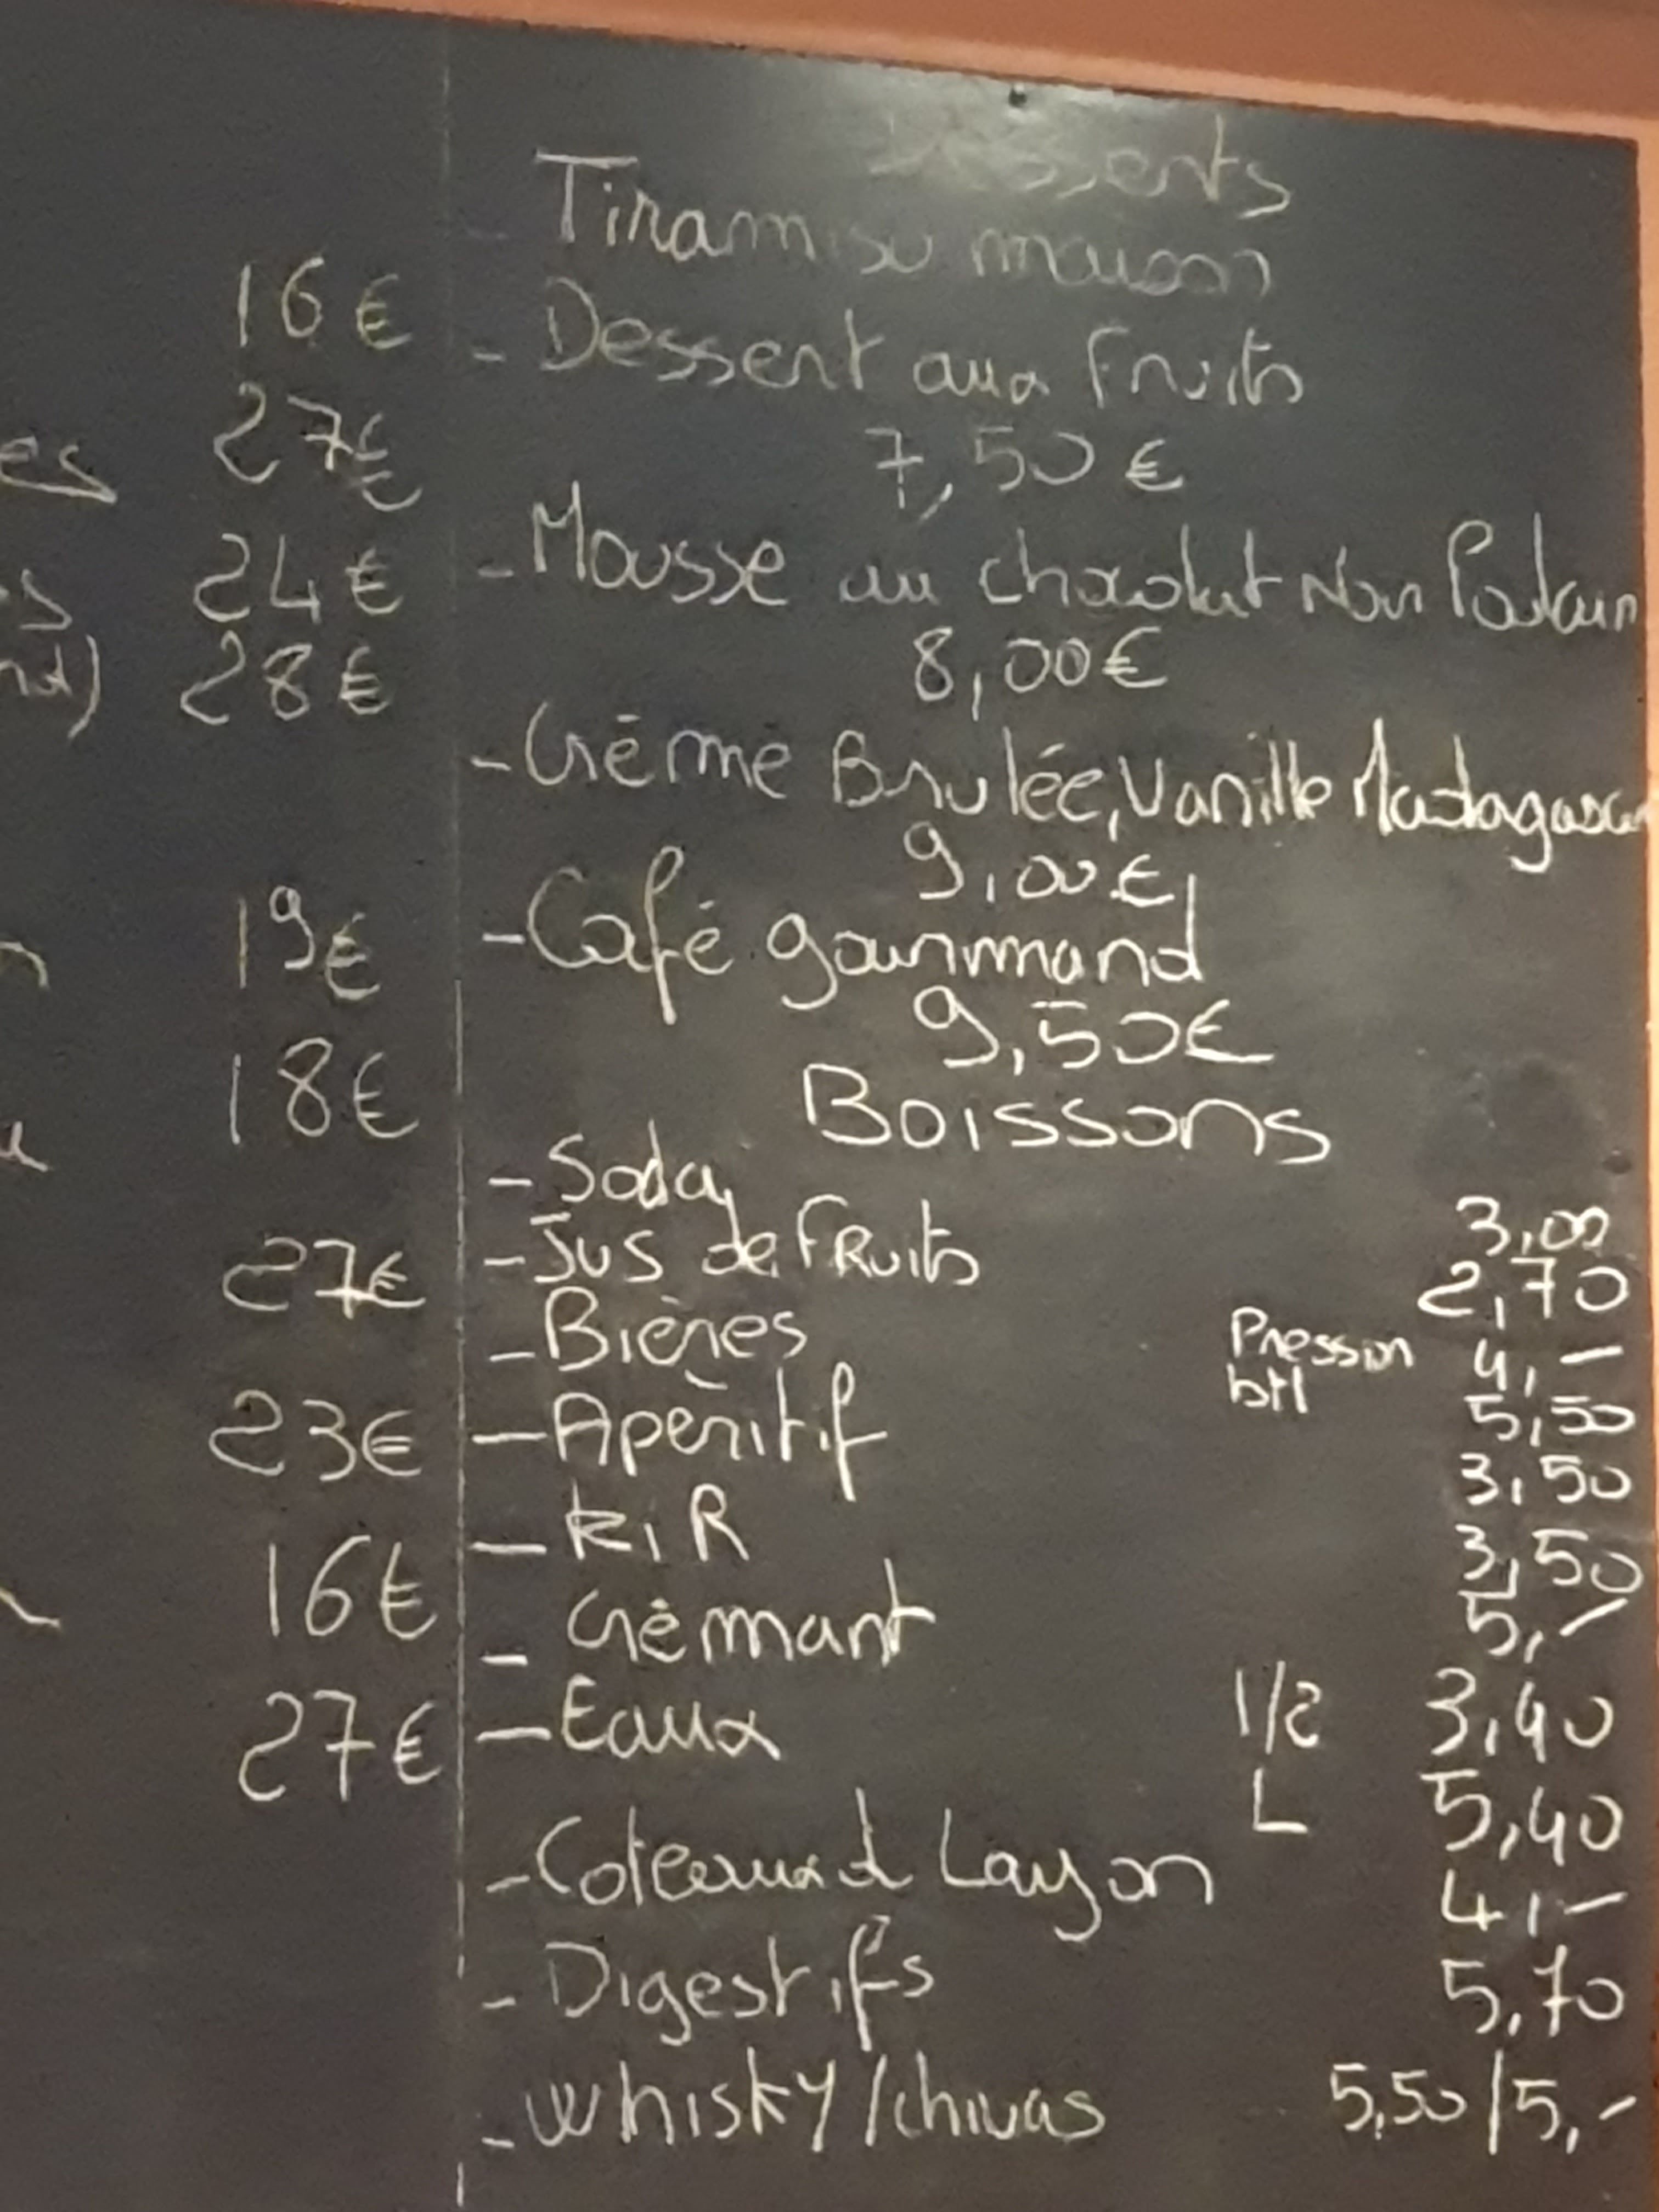 Desserts
- Tiramisu maison
16€
- Dessert aux fruits
27€
7,50€
es
- Mousse au chocolat Noir Poulain
24€
8,00€
28€
- Crème Brulée, Vanille Madagascar
9,00€
19€
- Café gourmand
9,50€
18€
Boissons
- Soda 3,00
- Jus de FRuits 2,70
27€
- Bières Pression 4,-
btl 5,50
23€
- Apéritif 3,50
- KiR 3,50
16€
- Crémant 5,-
27€
- Eaux 1/2 3,40
L 5,40
- Coteaux d Layon 4,-
- Digestifs 5,70
- Whisky/chivas 5,50/5,-